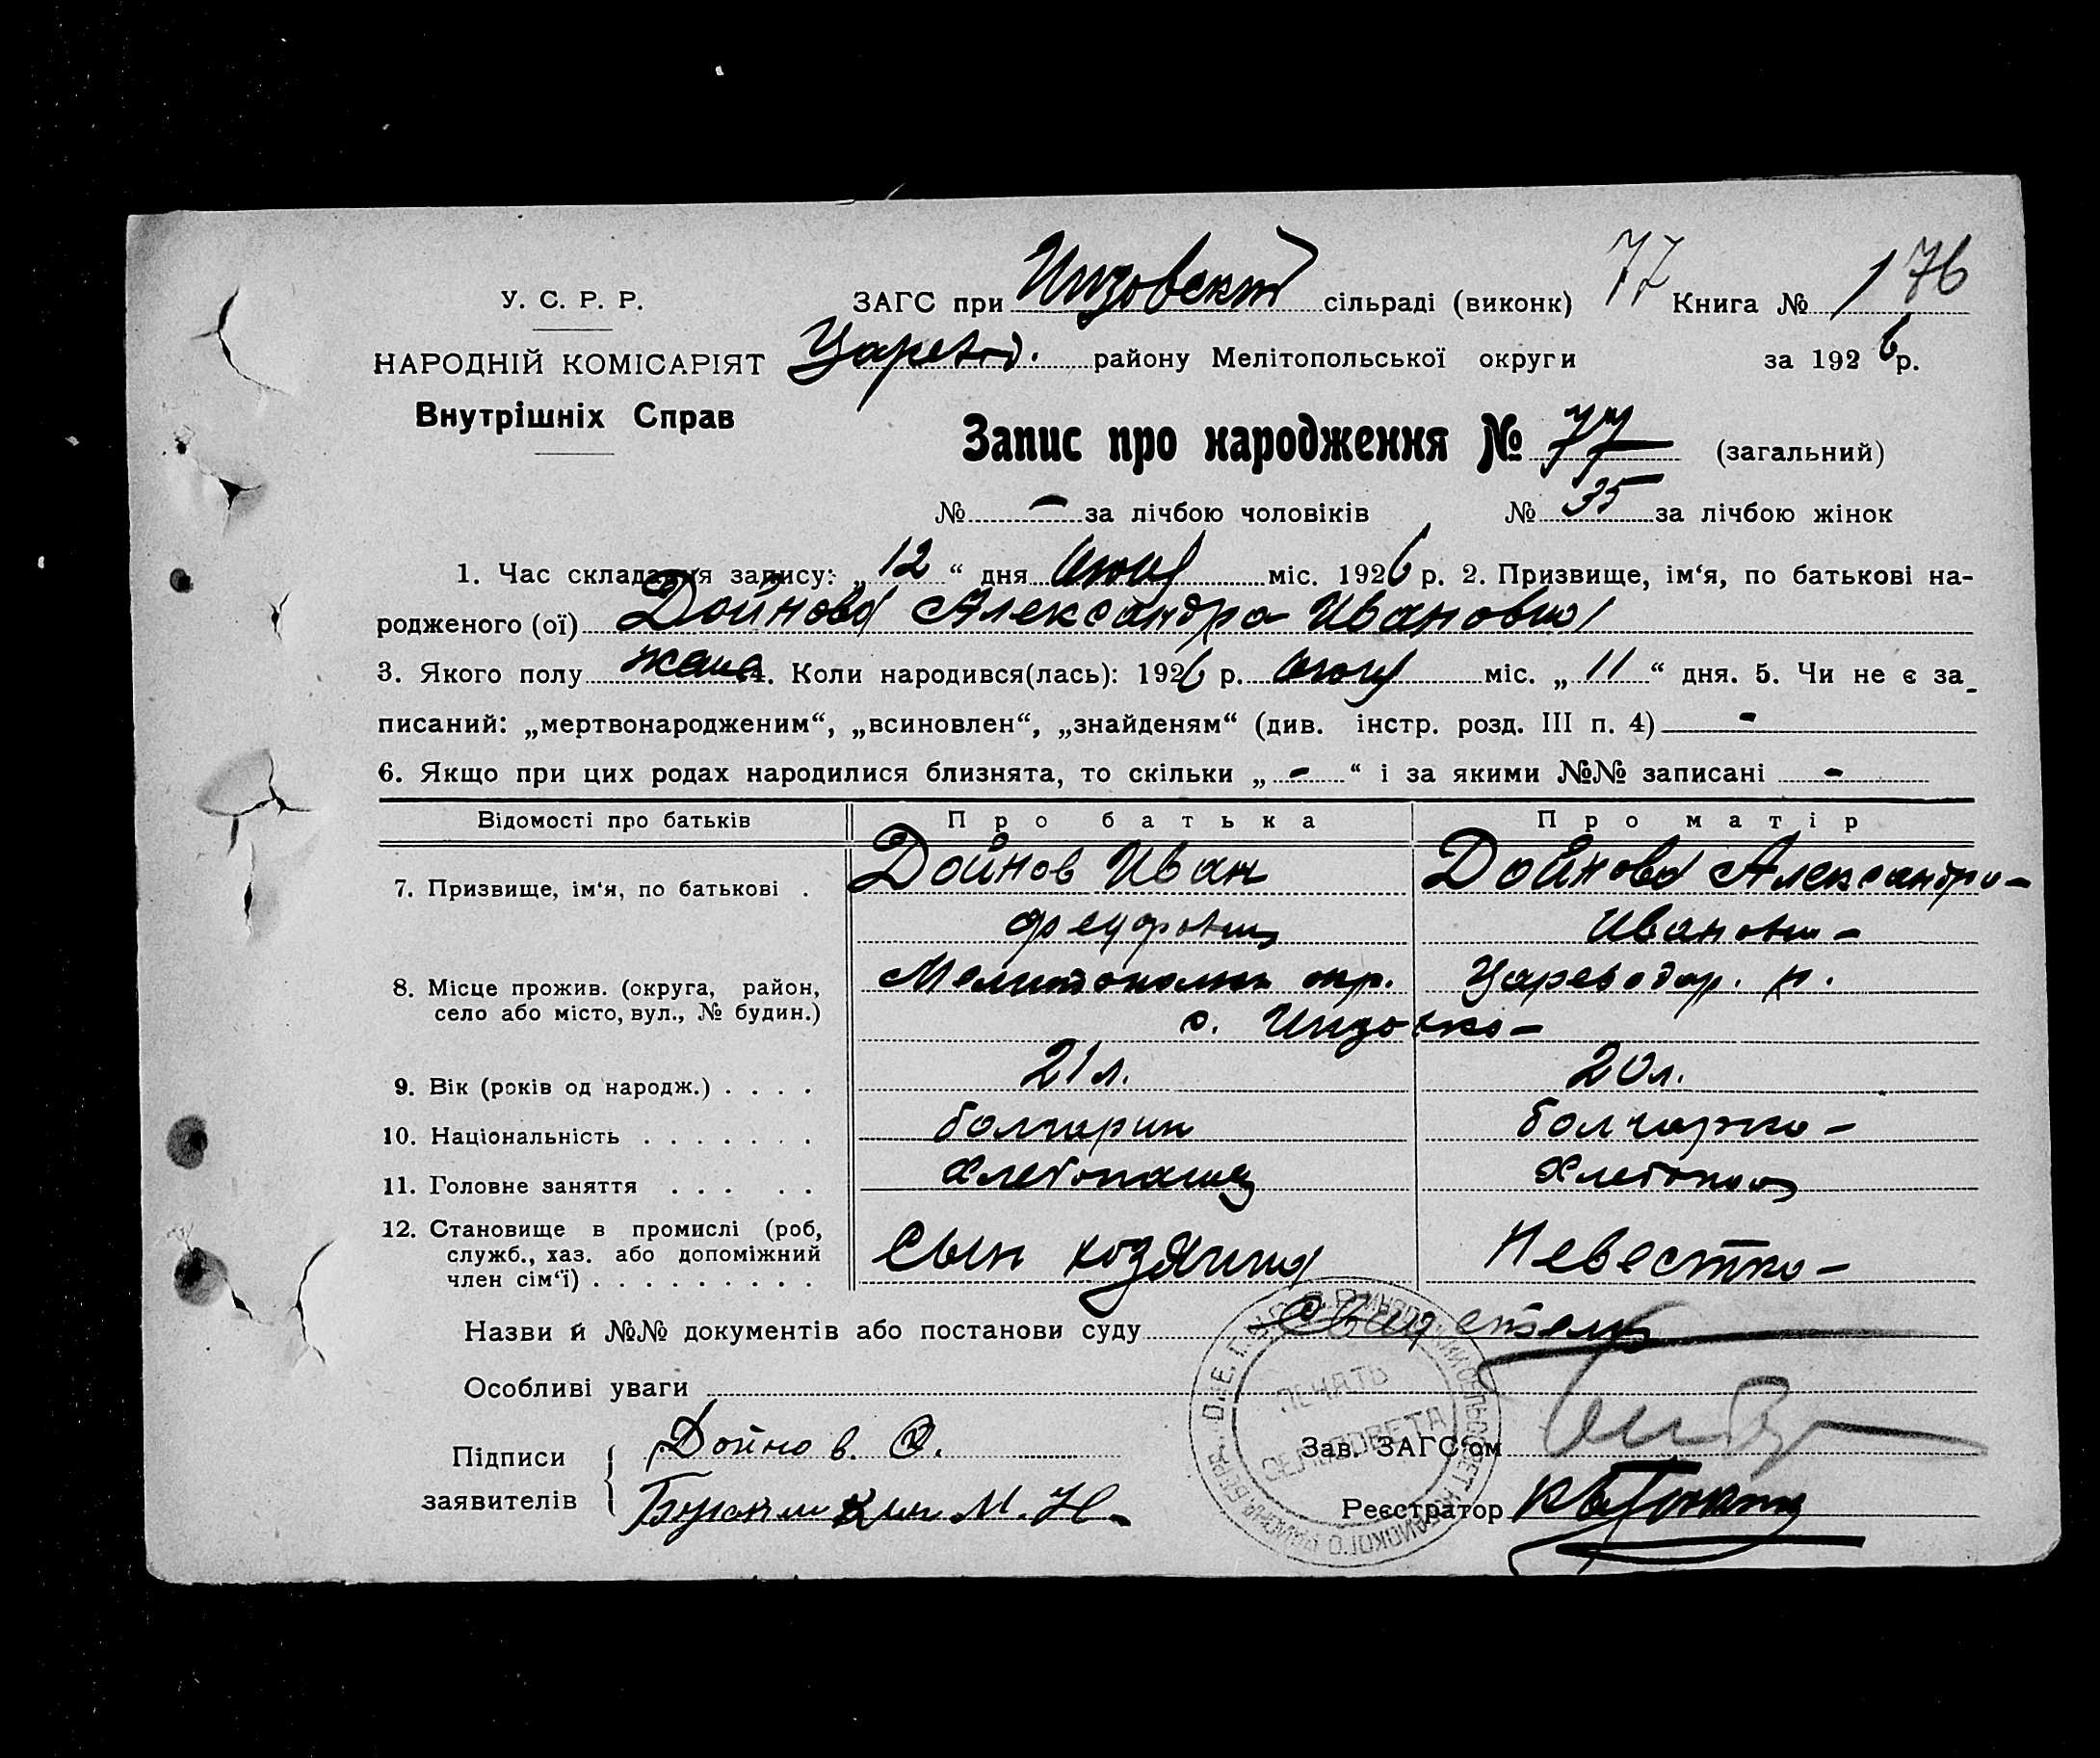 77 76
У. С. Р. Р. ЗАГС при сільраді (виконк) Книга № 1
НАРОДНІЙ КОМІСАРІЯТ району Мелітопольської округи за 1926 р.
Внутрішніх Справ
Запис про народження № 77 (загальний)
№ - за лічбою чоловіків № 35 за лічбою жінок
1. Час складання запису: „12“ дня міс. 1926 р. 2. Призвище, ім‘я, по батькові на-
родженого (ої) Дойнова Александра Иванови
3. Якого полу жена 4. Коли народився(лась): 1926 р. міс. „11“ дня. 5. Чи не є за-
писаний: „мертвонародженим“, „всиновлен“, „знайденям“ (див. інстр. розд. III п. 4) -
6. Якщо при цих родах народилися близнята, то скільки „-“ і за якими №№ записані -
Відомості про батьків Про батька Про матір
7. Призвище, ім‘я, по батькові . Дойнов Иван Дойнова Александра
Иванови
8. Місце прожив. (округа, район, окр. Цареводар. р.
село або місто, вул., № будин.) с.
9. Вік (років од народж.) . . . . 21 л. 20 л.
10. Національність . . . . . . . болгарин болгарка
11. Головне заняття . . . . . Хлебопашец
12. Становище в промислі (роб, Сын хозяина Невестка
служб., хаз. або допоміжний
член сім‘ї) . . . . . . . . .
Назви й №№ документів або постанови суду
Особливі уваги
ПЕЧАТЬ
СЕЛЬСОВЕТА
Підписи Дойнов. Зав. ЗАГС‘ом
заявителів М. Н. Реєстратор